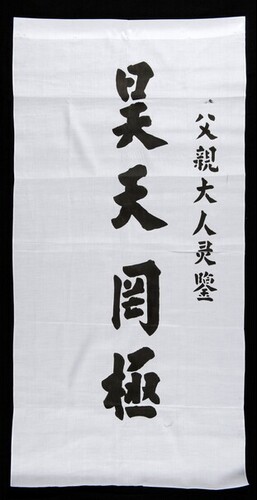 父親大人灵鑒
昊天罔極